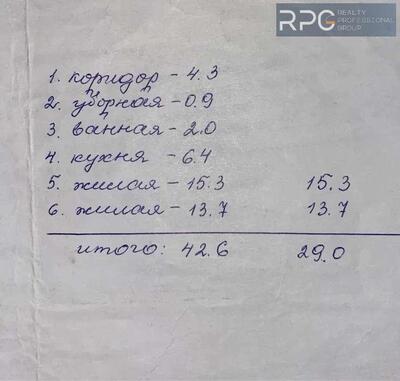 RPG REALTY PROFESSIONAL GROUP
1. коридор - 4.3
2. уборная - 0.9
3. ванная - 2.0
4. кухня - 6.4
5. жилая - 15.3 15.3
6. жилая - 13.7 13.7
итого: 42.6 29.0